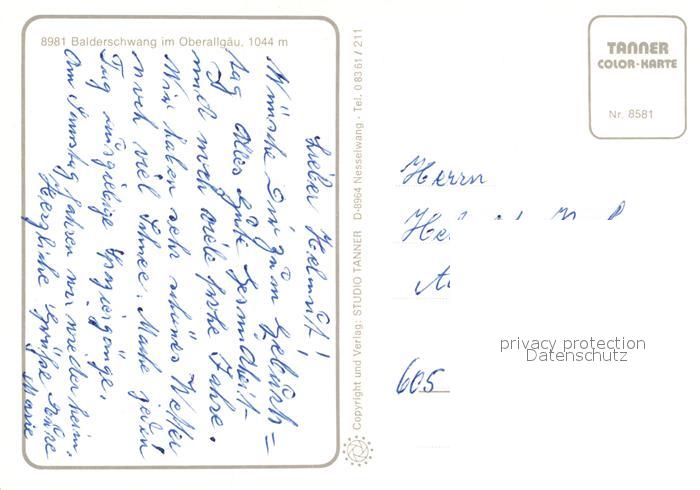 8981 Balderschwang im Oberallgäu, 1044 m
Lieber Helmut!
Wünsche Dir zum Geburts=
tag Alles Gute Gesundheit
und noch viele frohe Jahre.
Wir haben sehr schönes Wetter
noch viel Schnee. Mache jeden
Tag ausgiebige Spaziergänge.
Am Samstag fahren wir wieder heim.
Herzliche Grüße Deine
Marie
Copyright und Verlag: STUDIO TANNER D-8964 Nesselwang - Tel. 0 83 61 / 211
TANNER
COLOR-KARTE
Nr. 8581
Herrn
privacy protection
Datenschutz
605